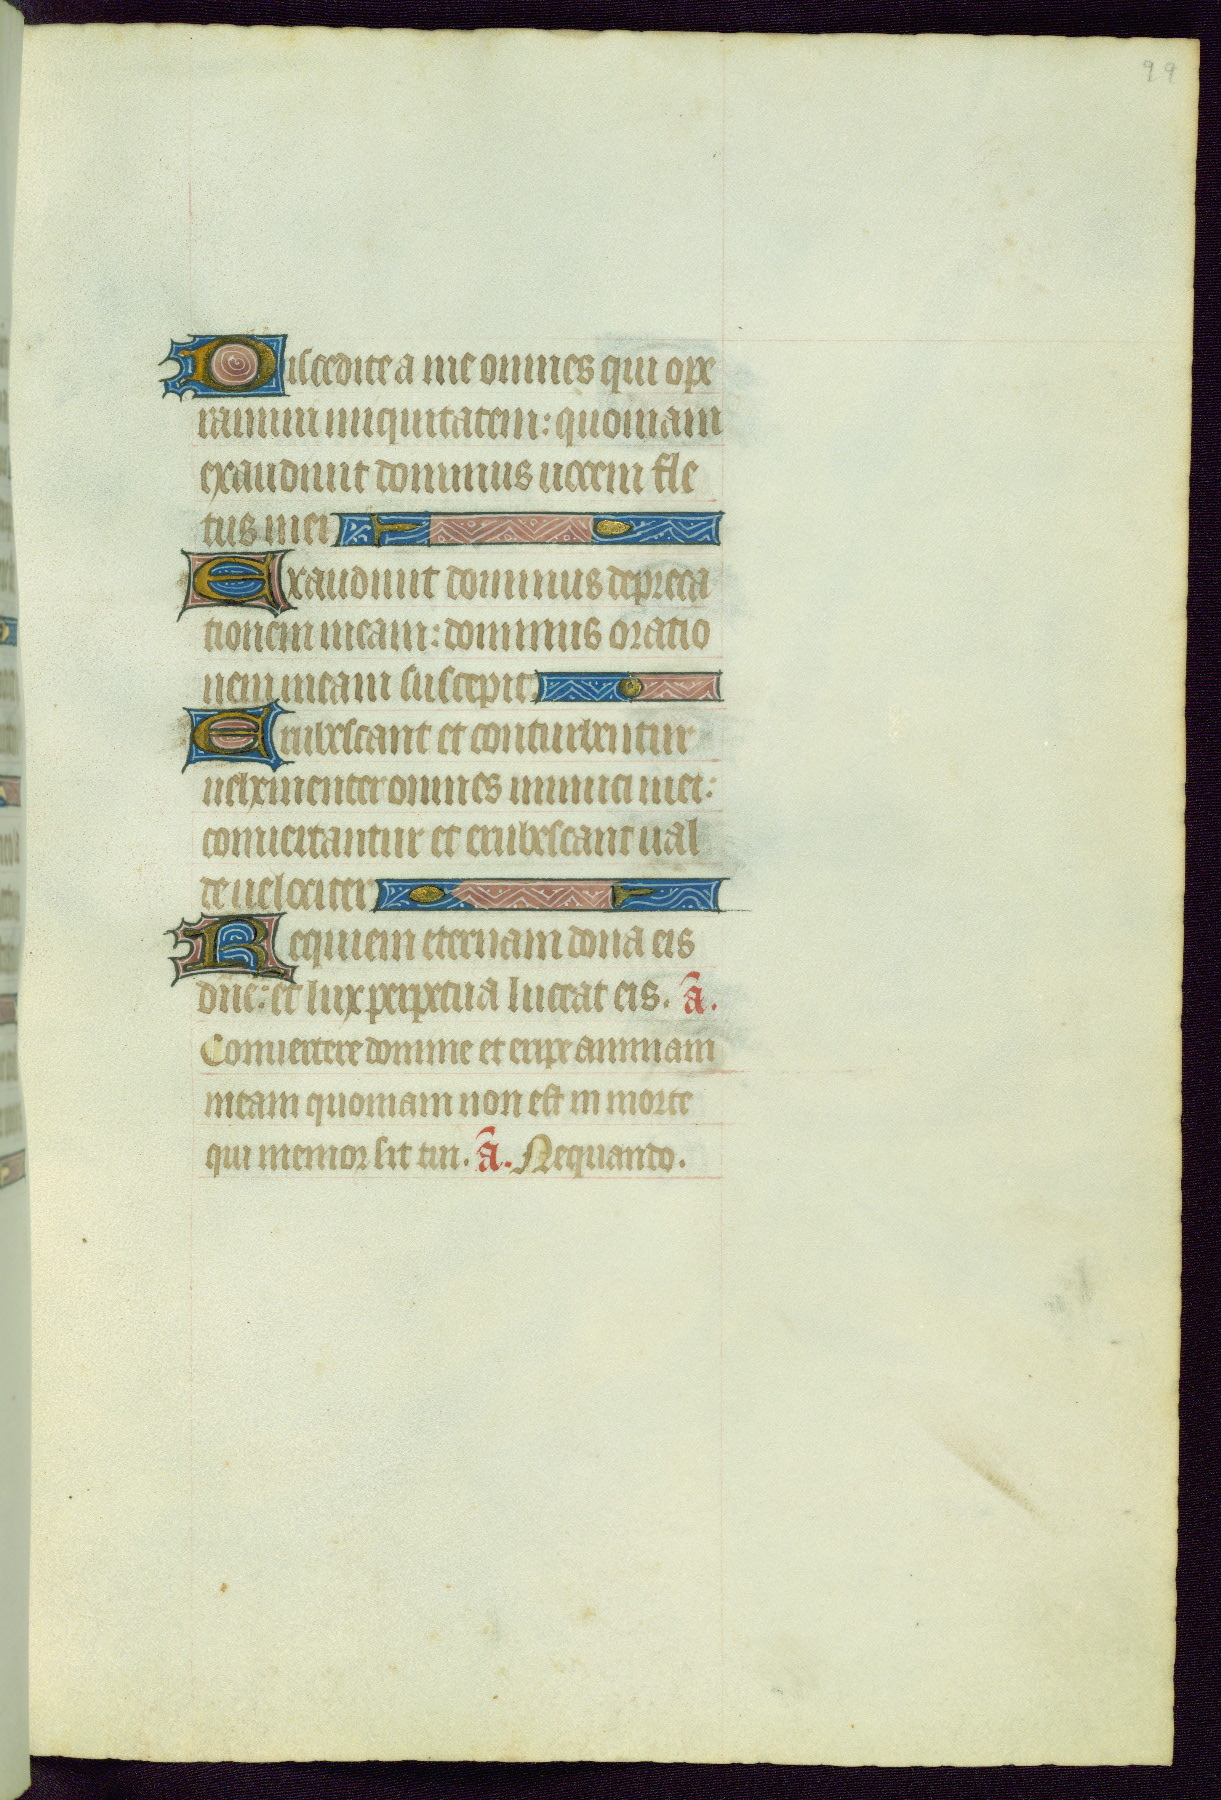 99
Discedite a me omnes qui ope
ramini iniquitatem: quoniam
exaudiuit dominus uocem fle
tus mei
Exaudiuit dominus depreca
tionem meam: dominus oratio
nem meam suscepit.
Erubescant et conturbentur
uehementer omnes inimici mei:
conuertantur et erubescant ual
de uelociter
Requiem eternam dona eis
dn̄e: et lux perpetua luceat eis. ā.
Conuertere domine et eripe animam
meam quoniam non est in morte
qui memor sit tui. ā. Nequando.